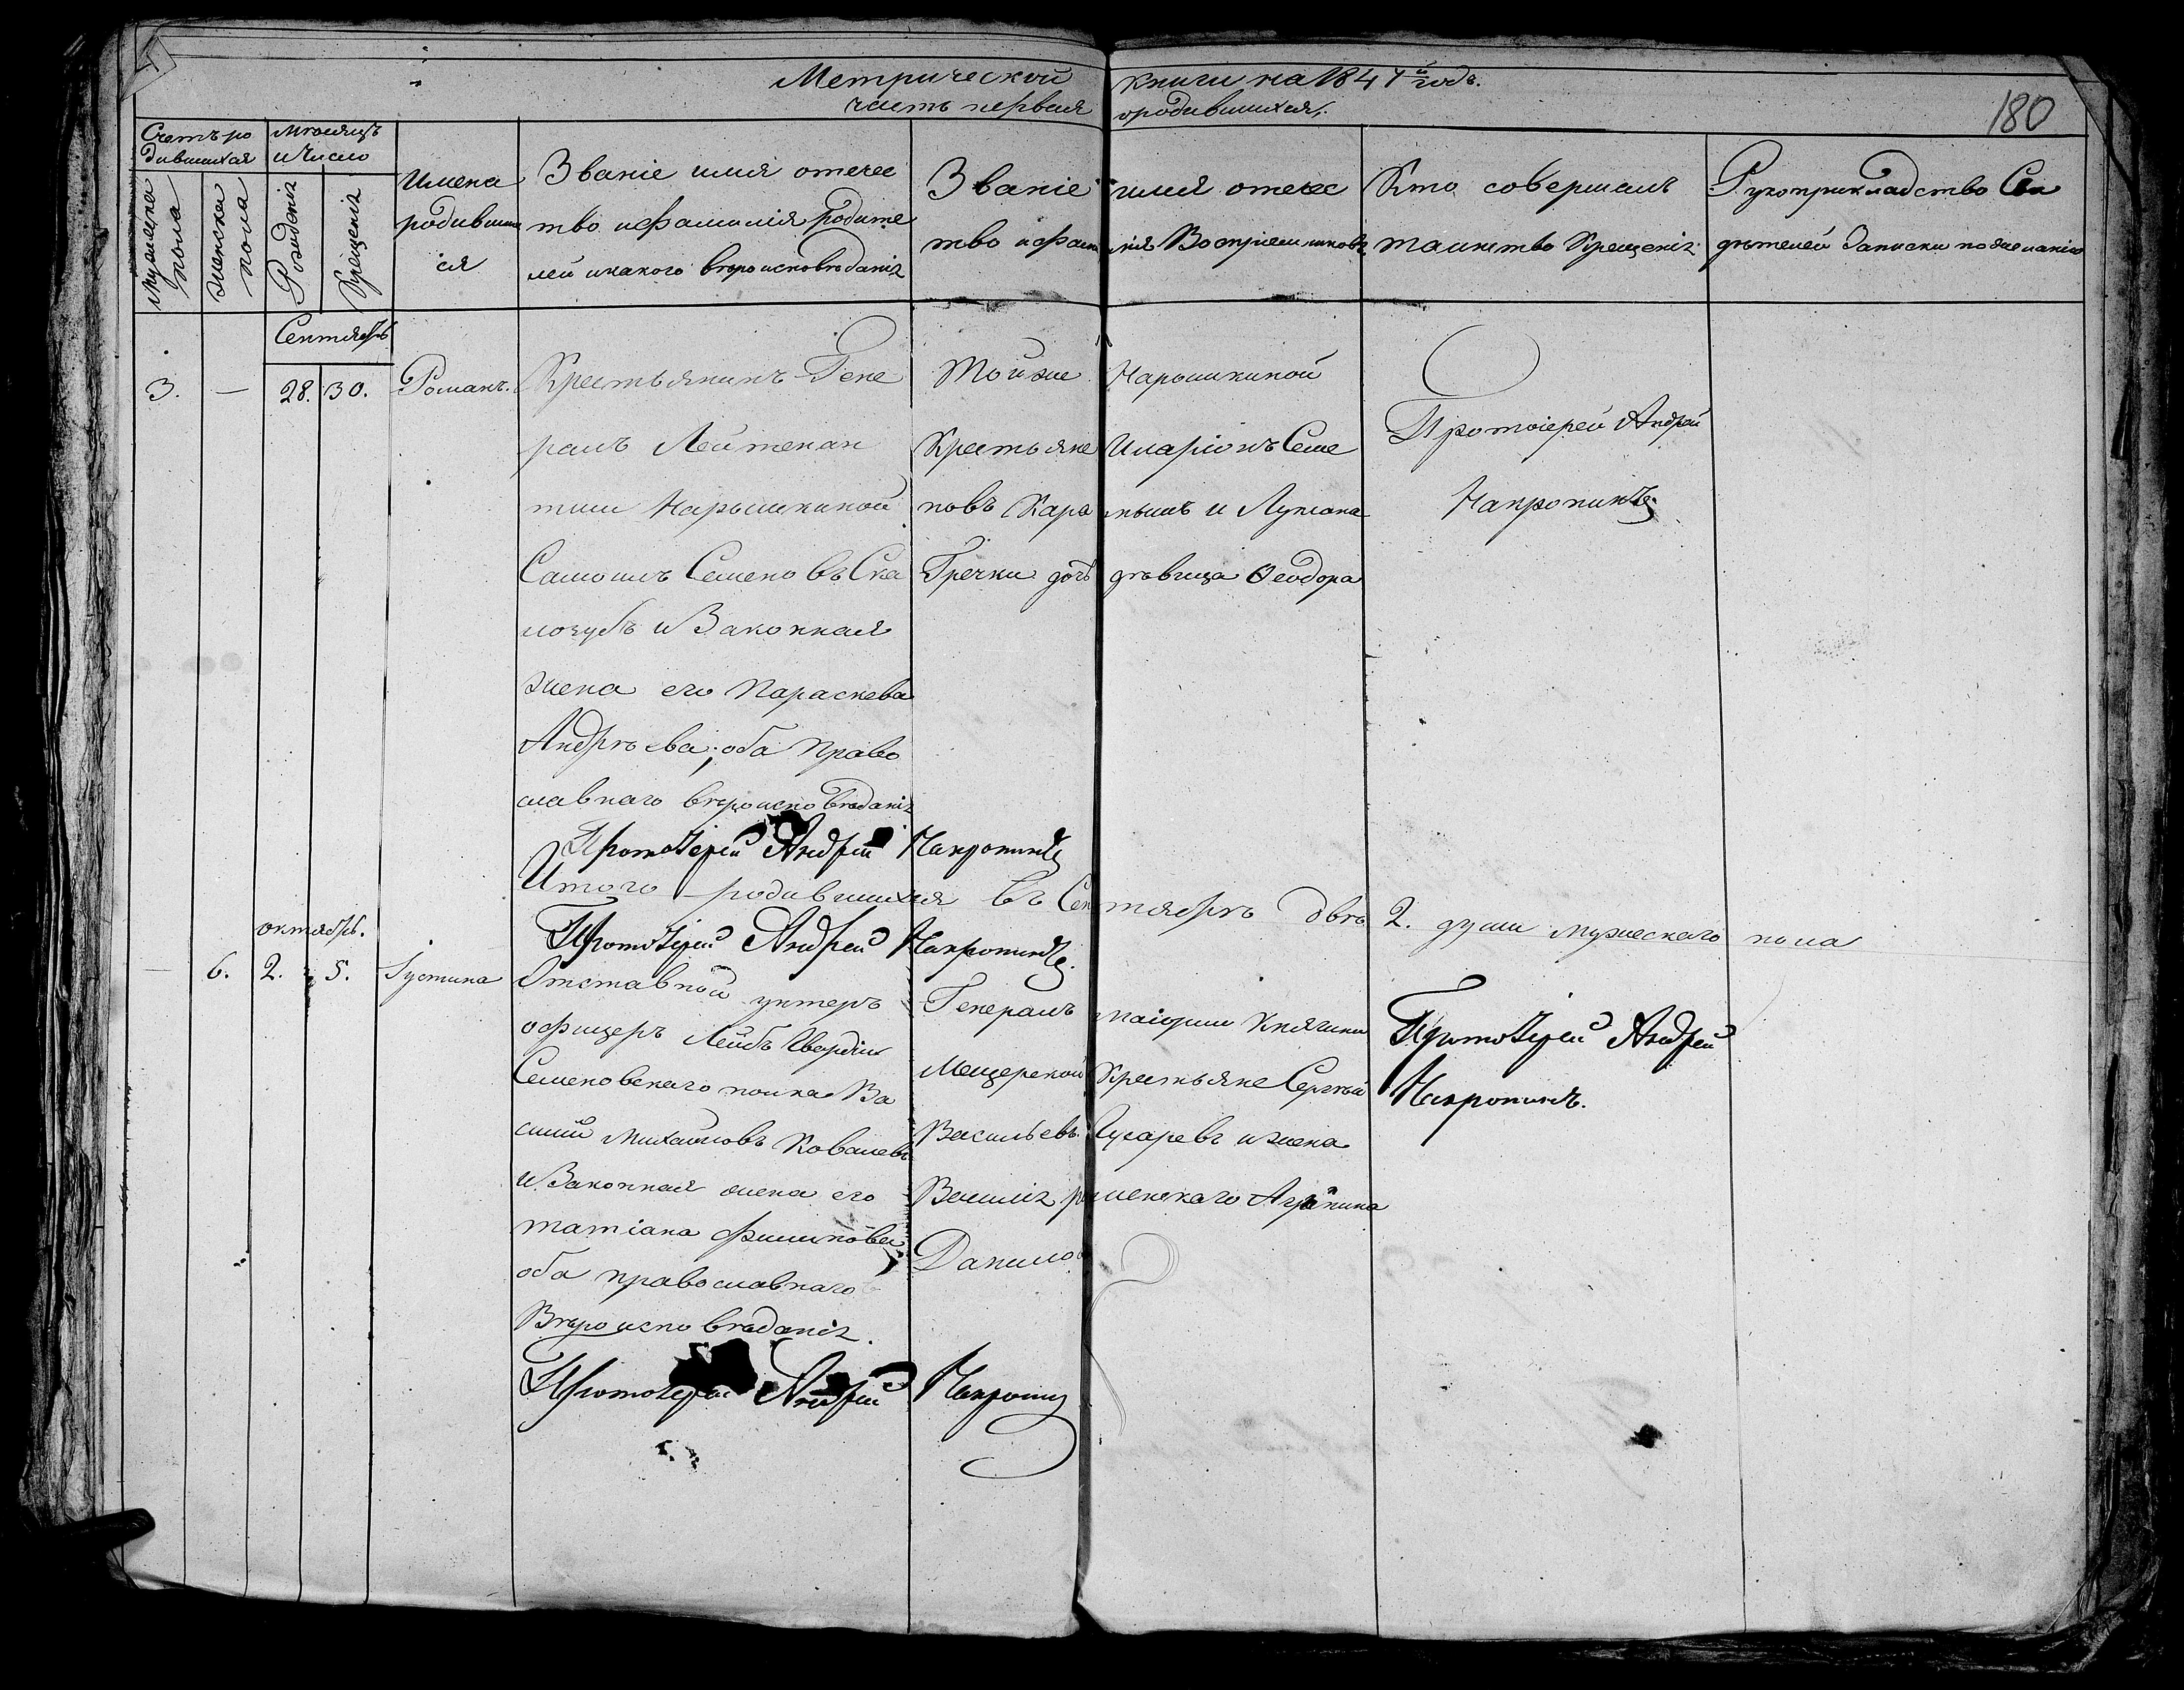 Метрической книги на 1847й годъ.
часть первая ородившихся.
180
Счетъ ро
дившихся
Мужеска
пола
женска
пола
Мѣсяцъ
и Число
Рожденія
Крещенія
Имена
родивших
ся
Званіе имя отечес
тво иФамилія Родите
лей икакого вѣроисповѣданія
Званіе имя отечес
тво иФами лія Воспріемниковъ
Кто совершалъ
таинство Крещенія
Рукоприкладство Сви
дѣтелей Записки по желанію
Сентябрь
3.
—
28.
30.
Романъ.
Крестьянинъ Гене
ралъ Лейтенан
тши Нарышкиной
Самоилъ Семеновъ Ска
лозубъ иЗаконная
жена его Параскева
Андрѣева, оба Право
славнаго вѣроисповѣданія
Тойже Нарышкиной
Крестьяне Иларіонъ Семе
новъ и Лукіана
Гречки дочь дѣвица Ѳеодора
Протоіерей Андрей
Накропинъ
Протоіерей Андрей Накропинъ
Итого родившихся въ Сентябрѣ двѣ 2. души мужескаго пола
Протоіерей Андрей Накропинъ.
октябрь.
6.
2.
5.
Іустина
Отставной унтеръ
офицеръ Лейбъ Гвардіи
Семеновскаго полка Ва
силій Михайловъ Ковалевъ
иЗаконная жена его
татіана Филипова
оба православнаго
Вѣроисповѣданія.
Генералъ маіорши Княгини
Мещерской Крестьяне Сергѣй
Васильевъ ижена
Агрипина
Данилова
Протоіерей Андрей
Накропинъ.
Протоіерей Андрей Накропинъ